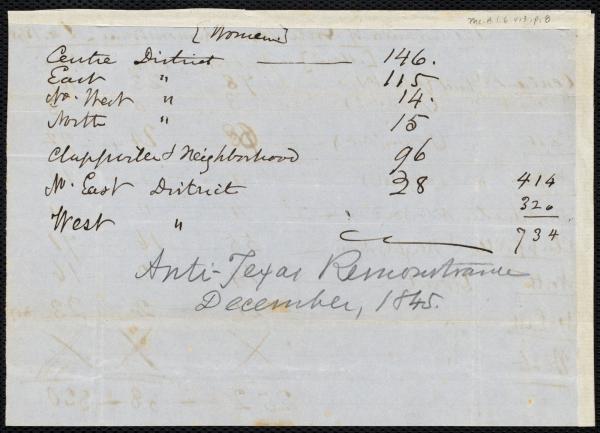 Ms. A.1.6 v.13, p. 8
[Women]
Centre District 146.
East " 115
No. West " 14.
North " 15
Clappville & Neighborhood 96
No. East District 28 414
320
West " 734
Anti-Texas Remonstrance
December, 1845.